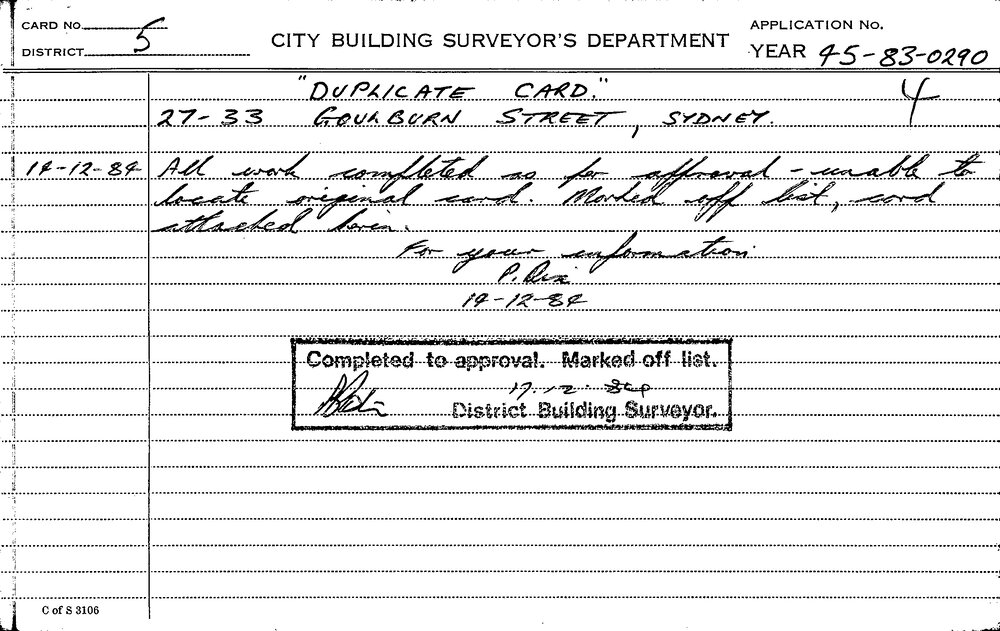 CARD No.
DISTRICT 5
CITY BUILDING SURVEYOR'S DEPARTMENT
APPLICATION No.
YEAR 45-83-0290
"DUPLICATE CARD."
4
27-33 GOULBURN STREET, SYDNEY.
14-12-84 All work completed as per approval - unable to
locate original card. Marked off list, card
attached herein.
For your information
P.
14-12-84
Completed to approval. Marked off list.
17.12.84
District Building Surveyor.
C of S 3106